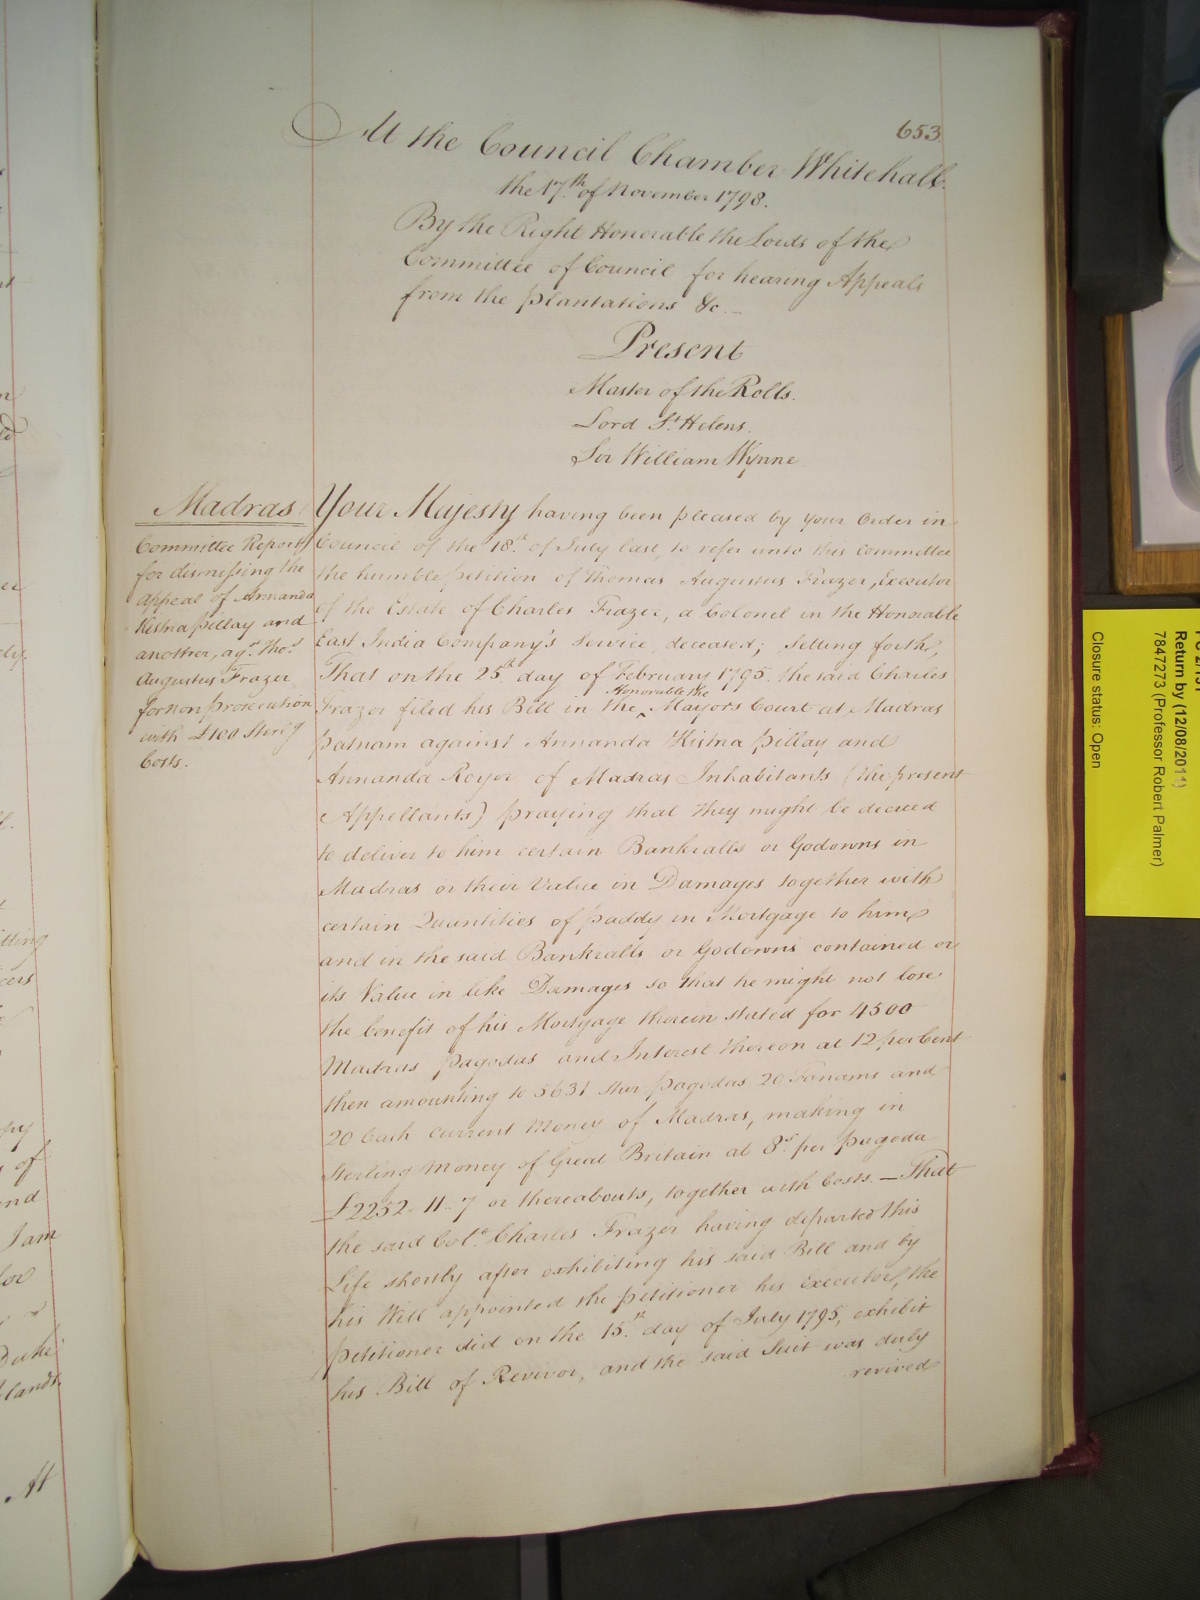 653
At the Council Chamber Whitehall
the 17th of November 1798.
By the Right Honorable the Lords of the
Committee of Council for hearing Appeals
from the Plantations &c.
Present
Master of the Rolls.
Lord St. Helens.
Sir William Wynne
Madras
Committee Report
for dismissing the
Appeal of Annanda
Kistna Pillay and
another, agt. Thos.
Augustus Frazer
for non prosecution
with £100 Sterlg
Costs.
Your Majesty having been pleased by Your Order in
Council of the 18th of July last, to refer unto this Committee
the humble petition of Thomas Augustus Frazer, Executor
of the Estate of Charles Frazer, a Colonel in the Honorable
East India Company's Service deceased; setting forth,
That on the 25th day of February 1795. the said Charles
Frazer filed his Bill in the Honorable the Mayors Court at Madras
patnam against Annanda Kistna Pillay and
Annanda Royer of Madras Inhabitants (the present
Appellants) praying that they might be decreed
to deliver to him certain Bankralls or Godowns in
Madras or their Value in Damages together with
certain Quantities of paddy in Mortgage to him
and in the said Bankralls or Godowns contained or
its Value in like Damages so that he might not lose
the benefit of his Mortgage therein stated for 4500
Madras Pagodas and Interest thereon at 12 per Cent
then amounting to 5631 Star Pagodas 20 Fanams and
20 Cash current Money of Madras, making in
Sterling Money of Great Britain at 8s. per pagoda
£2252. 11. 7 or thereabouts, together with Costs. — That
the said Colo. Charles Frazer having departed this
Life shortly after exhibiting his said Bill and by
his Will appointed the petitioner his Executor, the
petitioner did on the 15th day of July 1795, exhibit
his Bill of Revivor, and the said Suit was duly
revived
itting
cers
py
s of
and
I am
for
Duke
lands.
At
Return by (12/08/2011)
7847273 (Professor Robert Palmer)
Closure status: Open